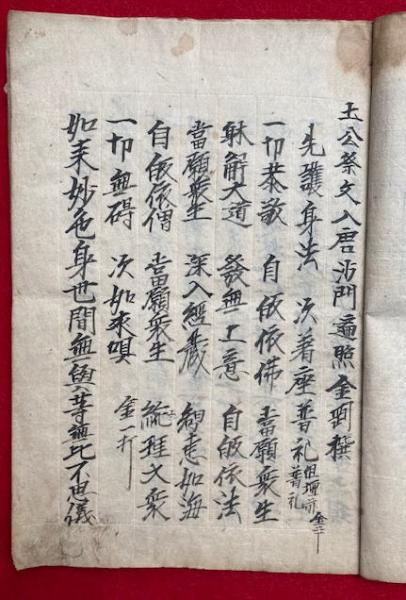 土公祭文入唐沙門遍照金剛撰
先護身法　次着座普礼 但壇前普礼 金二丁
一切恭敬　自皈依佛　當願衆生
躰解大道　發無上意　自皈依法
當願衆生　深入經蔵　智恵如海
自皈依僧　當願衆生　統理大衆
一切無碍　次如來唄　金一打
如来妙色身世間無與等無比不思儀